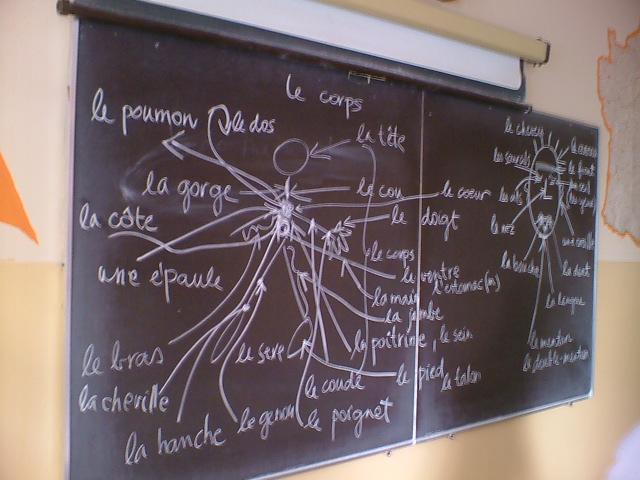 le corps
le poumon
le dos
la tête
la gorge
le cou
le coeur
la côte
le doigt
une épaule
le corps
le ventre
l'estomac (m)
la main
la jambe
la poitrine, le sein
le bras
le sexe
le pied
le talon
la cheville
le coude
la hanche
le genou
le poignet
le cheveu
le cerveau
les sourcils
le front
un œil
(les yeux)
les cils
le nez
une oreille
la bouche
la dent
la langue
le menton
le double-menton